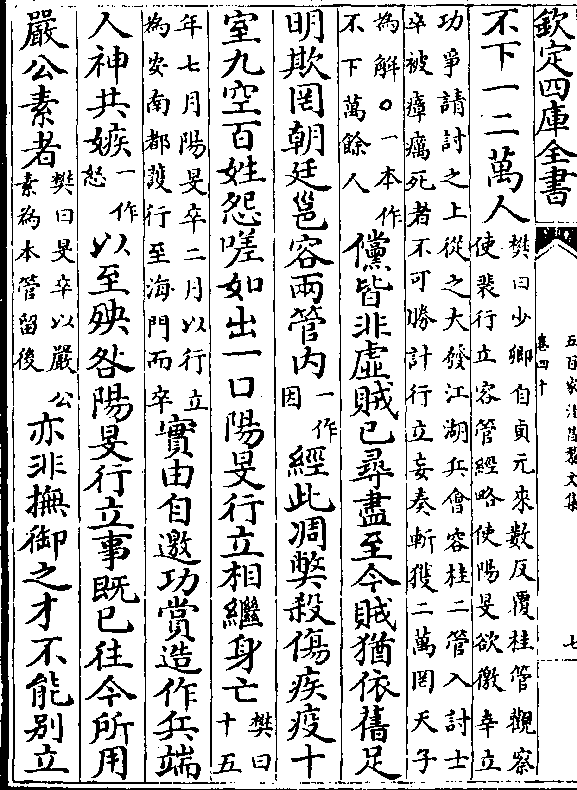 欽定四庫全書
五百家注昌黎文集
卷四十
七
不下一二萬人
樊曰少卿自貞元來數反覆桂管觀察
使裴行立容管經略使陽旻欲儌幸立
功爭請討之上從之大發江湖兵會容桂二管入討士
卒被瘴癘死者不可勝計行立妄奏斬獲二萬罔天子
為解○一本作
不下萬餘人
儻皆非虛賊已尋盡至今賊猶依舊足
明欺罔朝廷邕容兩管内
一作
因
經此凋弊殺傷疾疫十
室九空百姓怨嗟如出一口陽旻行立相繼身亡
樊曰
十五
年七月陽旻卒二月以行立
為安南都護行至海門而卒
實由自邀功賞造作兵端
人神共嫉
一作
怒
以至殃咎陽旻行立事既已往今所用
嚴公素者
樊曰旻卒以嚴公
素為本管留後
亦非撫御之才不能別立